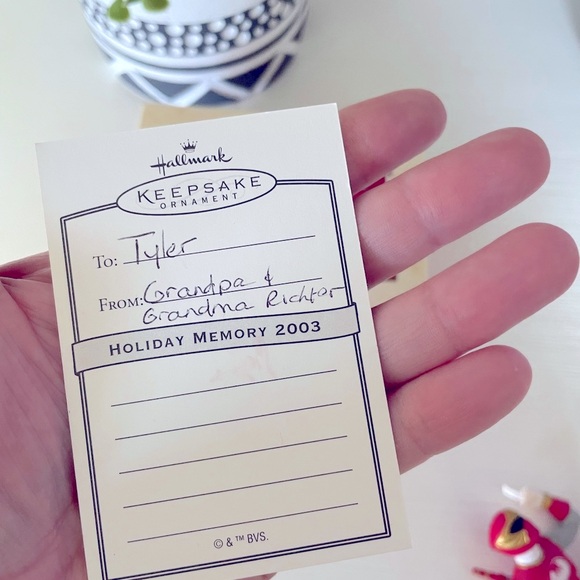 Hallmark
KEEPSAKE
ORNAMENT
TO: Tyler
FROM: Grandpa &
Grandma Richter
HOLIDAY MEMORY 2003
© & ™ BVS.